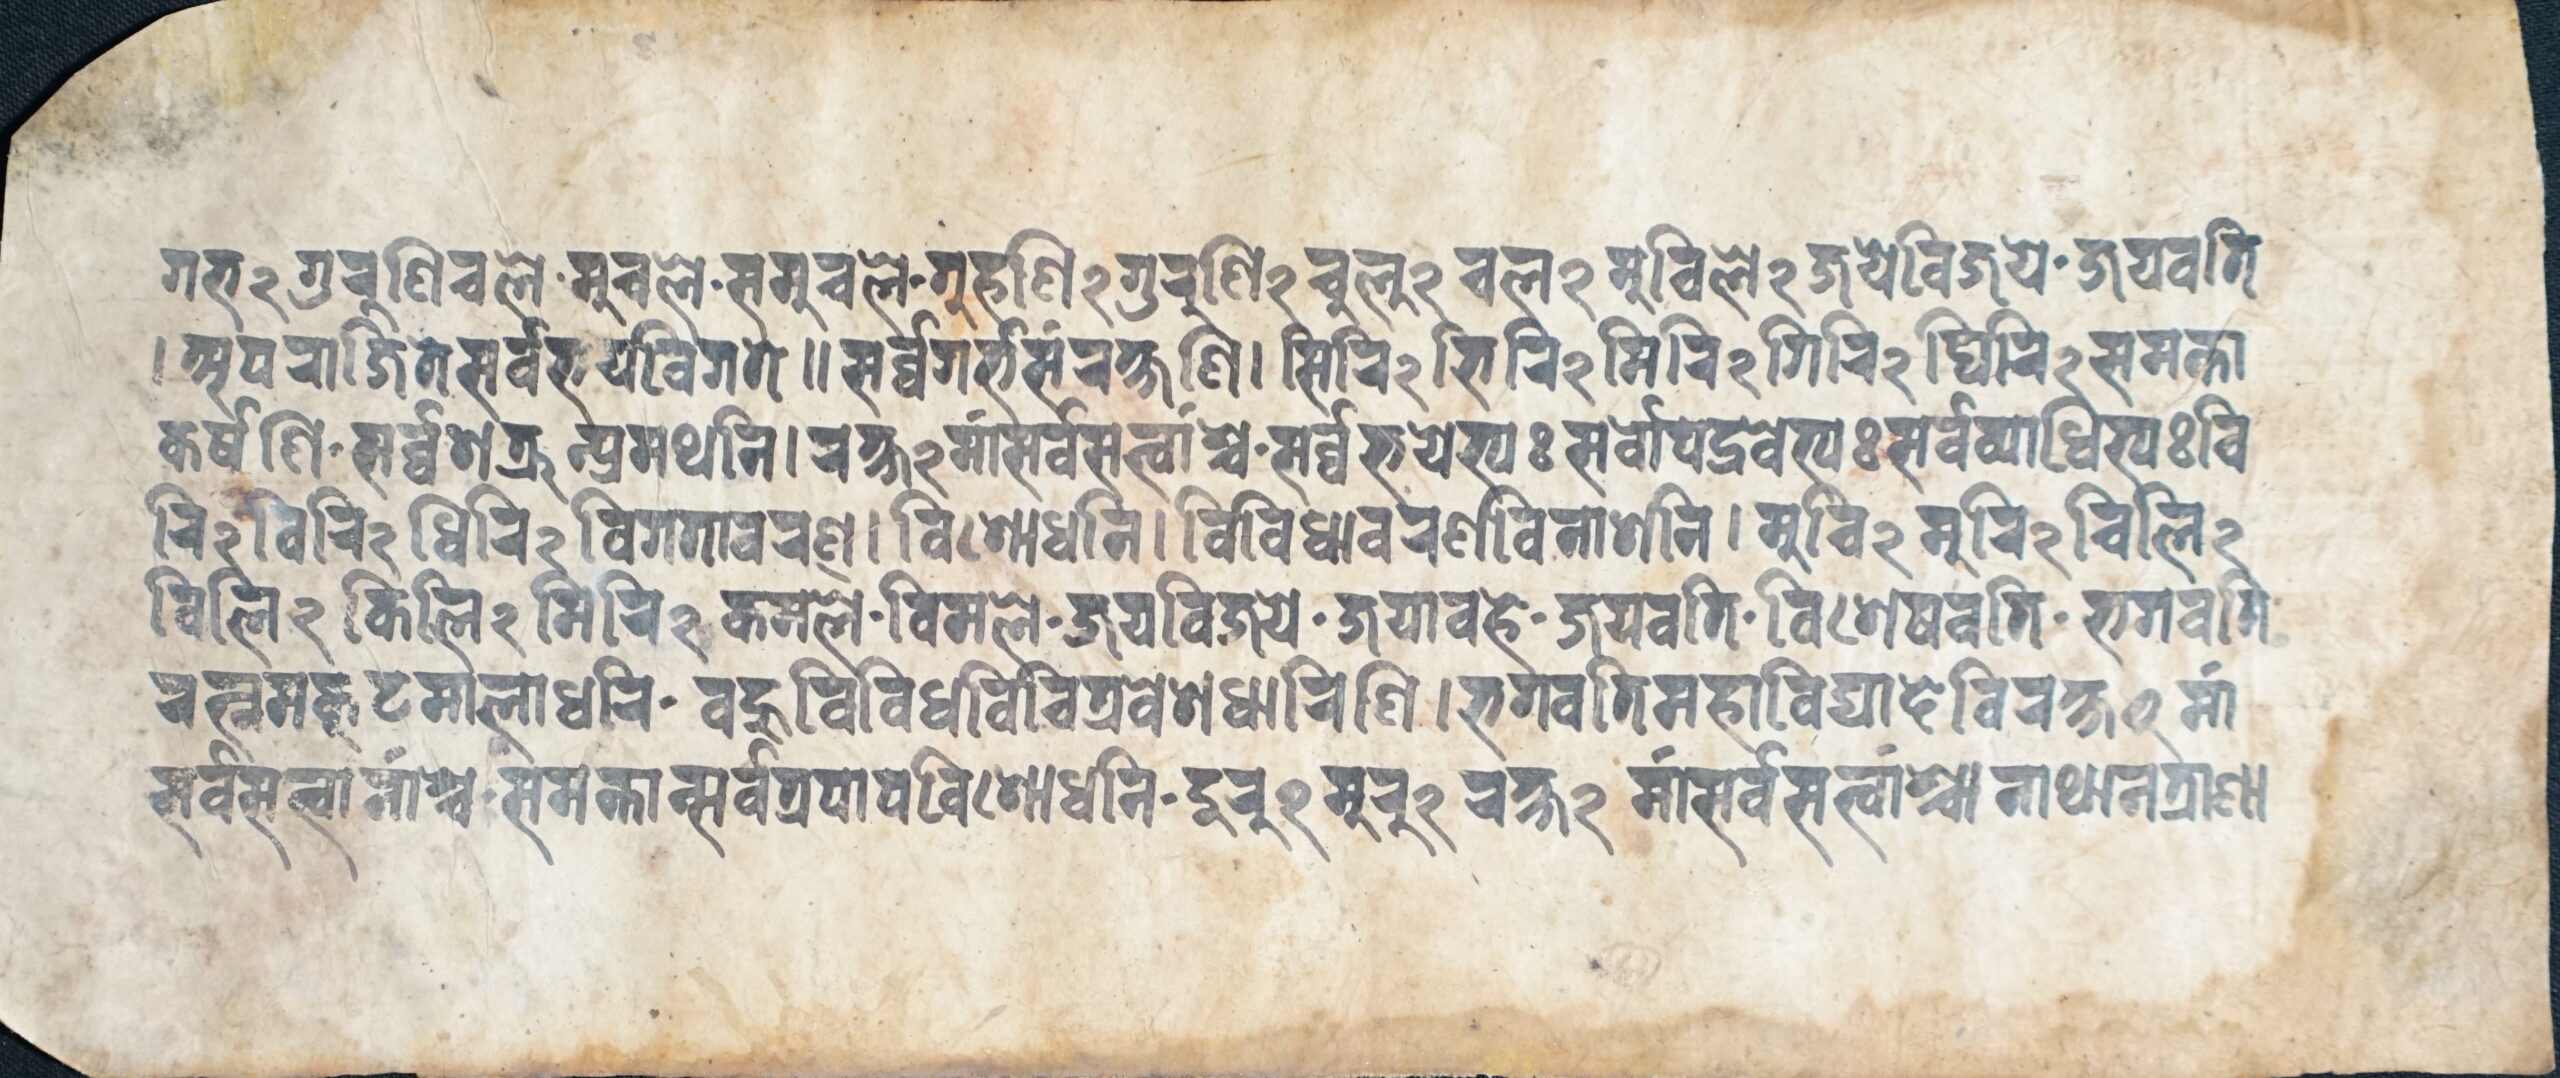 गरु२गुरुणिचले·मुचले·समुचले·गुहणि२गुरुणि२चुलु२चल२मुचिले२जयेविजये·जयवति
।अपराजितेसर्वभयविगते॥सर्व्वगर्भसंरक्षणि।सिरि२भिरि२मिरि२गिरि२घिरि२समन्ता
कर्षणि·सर्व्वशत्रून्प्रमथनि।रक्ष२मांसर्वसत्वांश्च·सर्व्वभयेभ्यःसर्वोपद्रवेभ्यःसर्वव्याधिभ्यःवि
रि२विरि२धिरि२विगतावरण्।विशोधनि।विविधावरणविनाशनि।मुचि२मुरि२चिलि२
विलि२किलि२मिरि२कमले·विमले·जयविजये·जयावहे·जयवति·विशेषवति·भगवति
रत्नमकूटमालाधरि·बहुविविधविचित्रवेशधारिणि।भगवतिमहाविद्यादेविरक्ष२मां
सर्वसत्वानांश्च·समन्तात्सर्वत्रपापविशोधनि·हुरु२मुरु२रक्ष२मांसर्वसत्वांश्चानाथानत्राणा